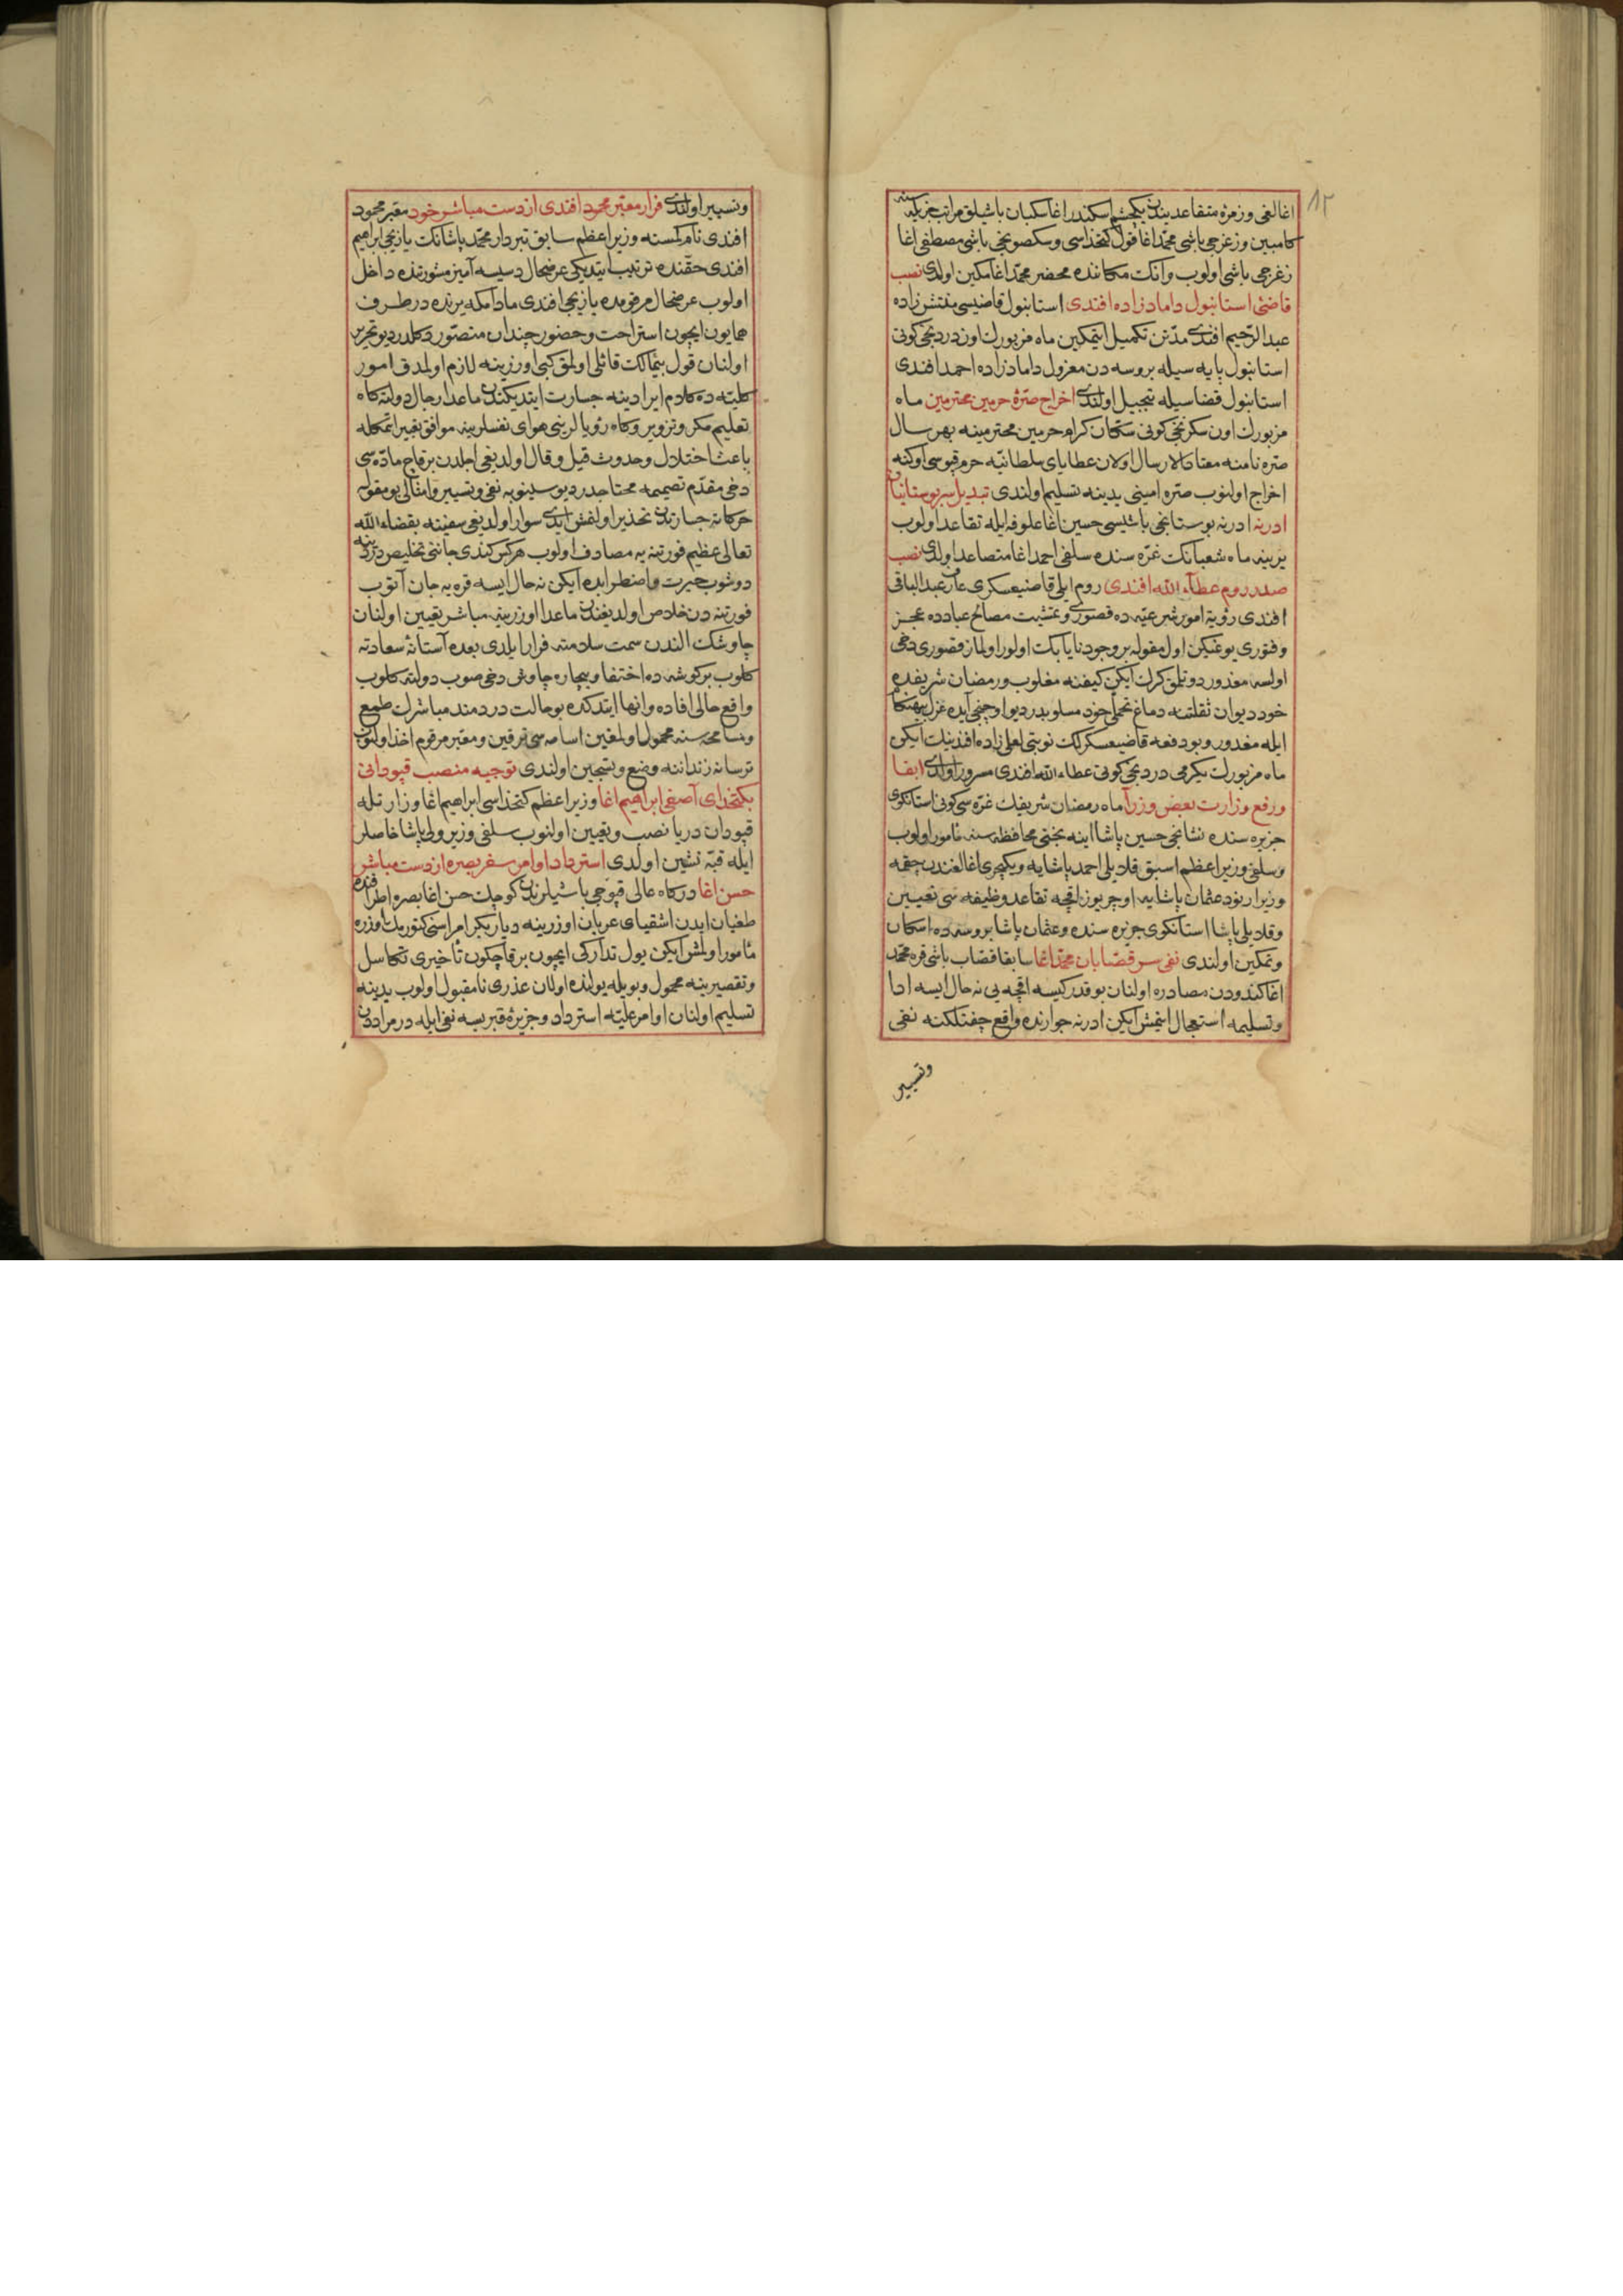 ١٢
اغالغی وزمرهٔ متقاعدیندن یکچشم اسکندر اغا سکبان باشیلق مراتب جزیله سنه
کامبین وزغرجی باشی محمد اغا قول کتخداسی وسکصونجی باشی مصطفی اغا
زغرجی باشی اولوب وانک مکاننده محضر محمد اغا مکین اولدی نصب
قاضئ استانبول دامادزاده افندی استانبول قاضیسی مفتش زاده
عبد الرحیم افندی مدتن تکمیل ایتمکین ماه مزبورک اون دردنجی کونی
استانبول پایه سیله بروسه دن معزول دامادزاده احمد افندی
استانبول قضاسیله تبجیل اولندی اخراج صرهٔ حرمین محترمین ماه
مزبورک اون سکزنجی کونی سکان کرام حرمین محترمینه بهر سال
صره نامنه معتاد الارسال اولان عطایای سلطانیه حرم قپوسی اوکنه
اخراج اولنوب صره امینی یدینه تسلیم اولندی تبدیل سربوستانیان
ادرنه ادرنه بوستانجی باشیسی حسین اغا علوفه ایله تقاعد اولوب
یرینه ماه شعبانک غره سنده سلفی احمد اغا متصاعد اولدی نصب
صدر روم عطاء الله افندی روم ایلی قاضیعسکری عارف عبد الباقی
افندی رؤیة امور شرعیه ده قصوری وتمشیت مصالح عبادده عجز
وفتوری یوغیکن اول مقوله بر وجود نایابک اولور اولماز قصوری دخی
اولسه معذور دوتلق کرک ایکن کیفنه مغلوب ورمضان شریفده
خود دیوان ثقلتنه دماغ تحملی خود مسلوبدر دیو اوچنجی آیده عزل بیهنکام
ایله مغدور وبو دفعه قاضیعسکرلک نوبتی لعلی زاده افندینک ایکن
ماه مزبورک یکرمی دردنجی کونی عطاء الله افندی مسرور اولدی ابقا
ورفع وزارت بعض وزرا ماه رمضان شریفک غره سی کونی استانکوی
جزیره سنده نشانجی حسین پاشا اینه بختی محافظه سنه مأمور اولوب
وسلفی وزیر اعظم اسبق قلایلی احمد پاشایه ویکیچری اغالغندن چقمه
وزیر ارنود عثمان پاشایه اوچر یوز اقچه تقاعد وظیفه سی تعیین
وقلایلی پاشا استانکوی جزیره سنده وعثمان پاشا بروسه ده اسکان
وتمکین اولندی نفی سر قصابان محمد اغا سابقا قصاب باشی قره محمد
اغا کندودن مصادره اولنان بو قدر کیسه اقچه یی نه حال ایسه ادا
وتسلیمه استعجال ایتمش ایکن ادرنه جوارنده واقع چفتلکنه نفی
وتسییر
وتسییر اولندی فرار معتبر محمود افندی از دست مباشر خود معتبر محمود
افندی نام کمسنه وزیر اعظم سابق تبردار محمد پاشانک یازیجی ابراهیم
افندی حقنده ترتیب ایتدیکی عرضحال دسیسه آمیز مشورتنده داخل
اولوب عرضحال مرقومده یازیجی افندی مادامکه یرنده در طرف
همایون ایچون استراحت وحضور چندان متصور دکلدر دیو تحریر
اولنان قول بیمالک قائلی اولمق کبی اوزرینه لازم اولمدق امور
کلیه ده کلام ایرادینه جسارت ایتدیکندن ماعدا رجال دولته کاه
تعلیم مکر وتزویر وکاه رؤیالرینی هوای نفسلرینه موافق تعبیر ایتمکله
باعث اختلال وحدوث قیل وقال اولدیغی اجلدن بر قاچ ماده سی
دخی مقدم تصمیمه محتاجدر دیو سینوبه نفی وتسییر وامثالی بو مقوله
حرکاته جسارتدن تحذیر اولنمش ایدی سوار اولدیغی سفینه بقضاء الله
تعالی عظیم فورتنه یه مصادف اولوب هرکس کندی جاننی تخلیص دردینه
دوشوب حیرت واضطرابده ایکن نه حال ایسه قره یه جان آتوب
فورتنه دن خلاص اولدیغندن ماعدا اوزرینه مباشر تعیین اولنان
چاوشک الندن سمت سلامته فرار ایلدی بعده آستانهٔ سعادته
کلوب بر کوشه ده اختفا وبیچاره چاوش دخی صوب دولته کلوب
واقع حالی افاده وانها ایتدکده بو حالت دردمند مباشرک طمع
ومسامحه سنه محمول اولمغین اسامه سی ترقین ومعتبر مرقوم اخذ اولنوب
ترسانه زنداننه وضع وتسجین اولندی توجیه منصب قپودانی
بکتخدای آصفی ابراهیم اغا وزیر اعظم کتخداسی ابراهیم اغا وزارتله
قپودان دریا نصب وتعیین اولنوب سلفی وزیر ولی پاشا خاصلر
ایله قبه نشین اولدی استرداد اوامر سفر بصره از دست مباشر
حسن اغا درکاه عالی قپوجی باشیلرندن کوچک حسن اغا بصره واطرافنده
طغیان ایدن اشقیای عربان اوزرینه دیاربکر امراسنی کتورمک اوزره
مأمور اولمش ایکن یول تدارکی ایچون بر قاچ کون تأخیری تکاسل
وتقصیرینه محمول وبویله یولنده اولان عذری نامقبول اولوب یدینه
تسلیم اولنان اوامر علیه استرداد وجزیرهٔ قبریسه نفی ایله درمراددن